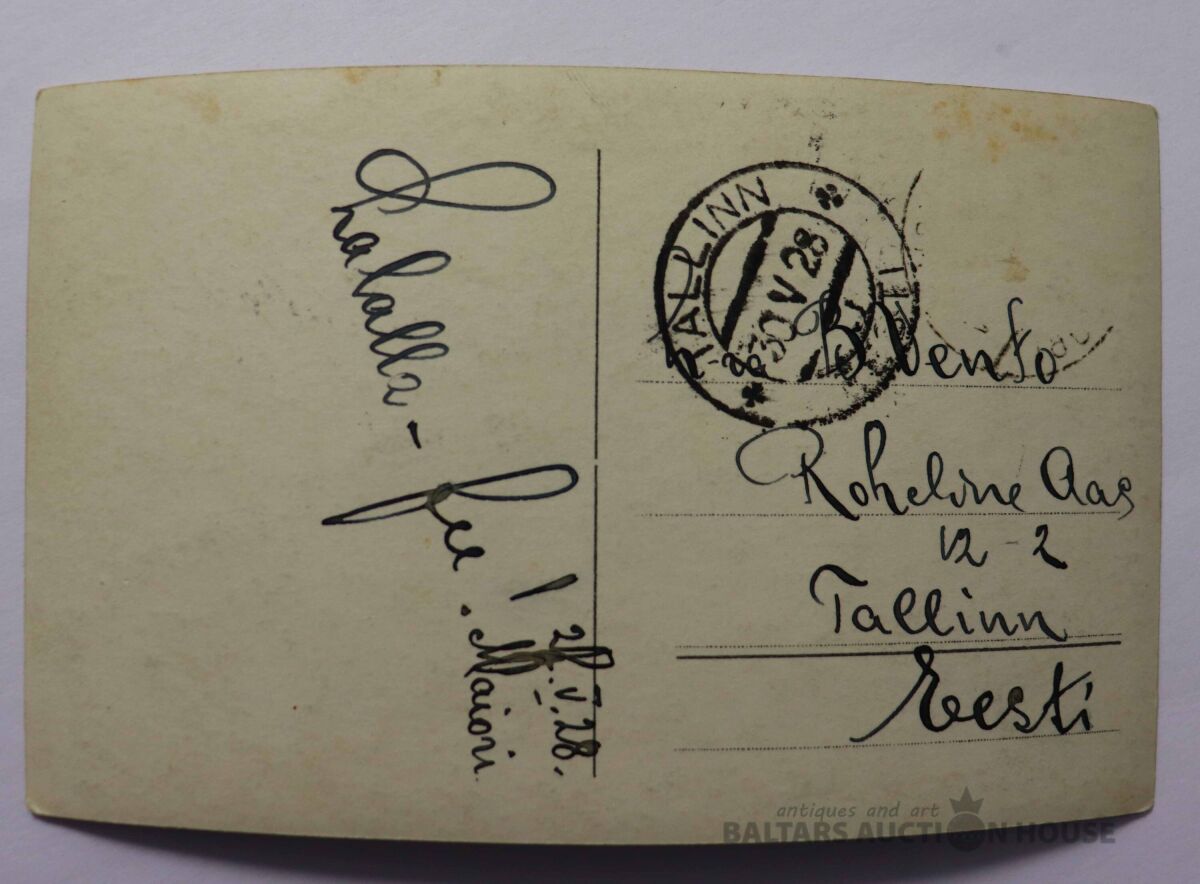 Tralalla-
lee!
28.V.28.
Maiori.
TALLINN
30 V 28
EESTI
B. Vento
Roheline Aas
12-2
Tallinn
Eesti
antiques and art
BALTARS AUCTION HOUSE